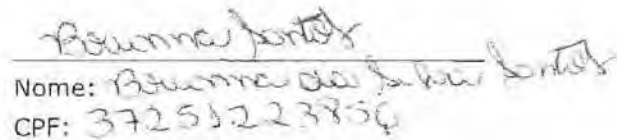 Brunna Santos
Nome: Brunna da Silva Santos
CPF: 37251223856